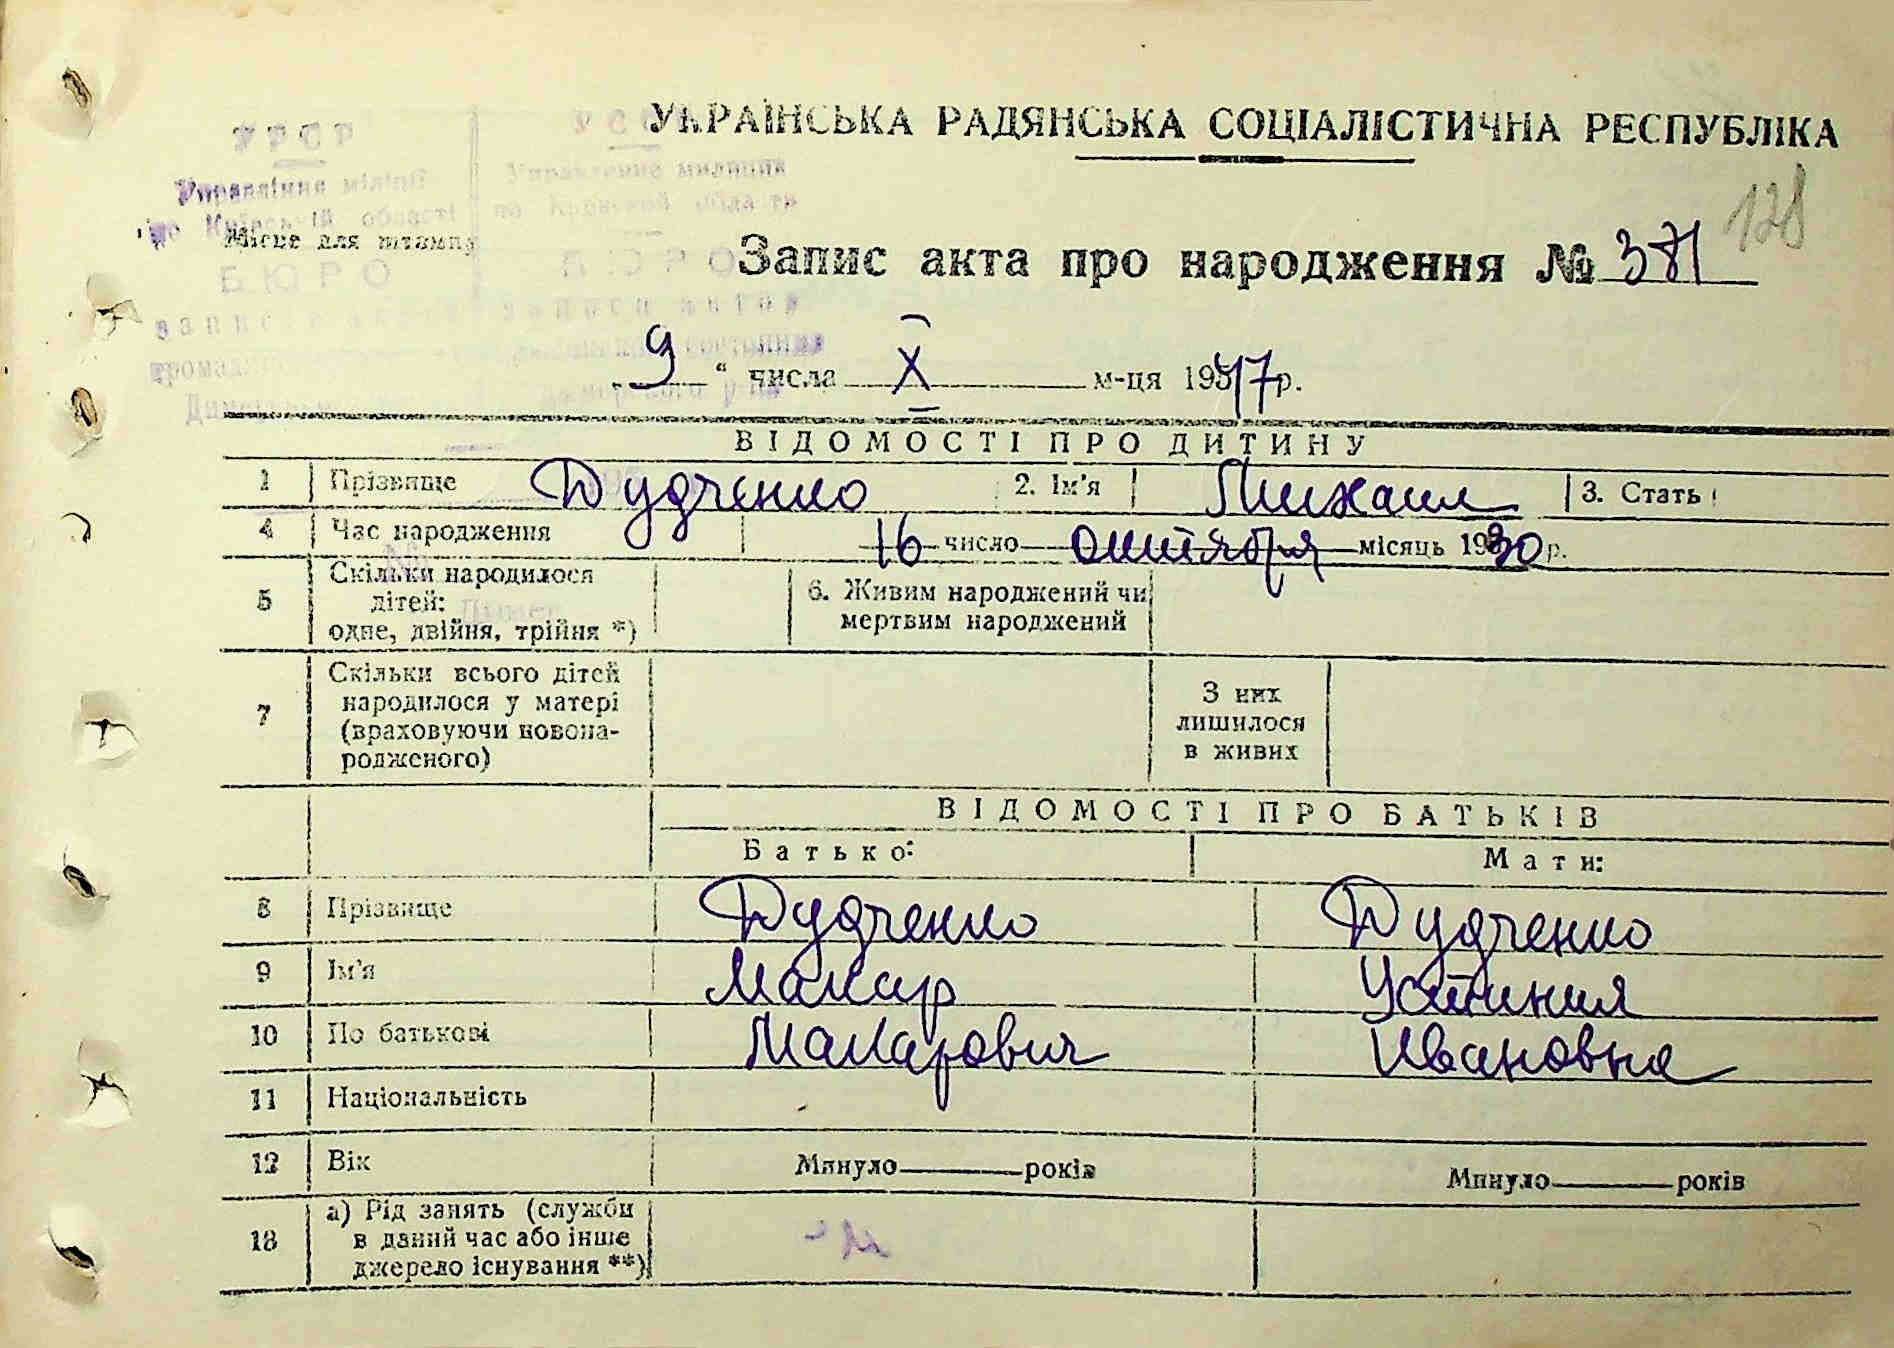 УКРАЇНСЬКА РАДЯНСЬКА СОЦІАЛІСТИЧНА РЕСПУБЛІКА
УРСР
Управління міліції
по Київській області
БЮРО
Управление милиции
Місце для штампу
128
Запис акта про народження № 381
„ 9 “ числа X м-ця 1947 р.
ВІДОМОСТІ ПРО ДИТИНУ
1 Прізвище Дудченко 2. Ім'я Михаил 3. Стать
4 Час народження 16 число октября місяць 1930 р.
5 Скільки народилося дітей: одне, двійня, трійня *) 6. Живим народжений чи мертвим народжений
7 Скільки всього дітей народилося у матері (враховуючи новонародженого) З них лишилося в живих
ВІДОМОСТІ ПРО БАТЬКІВ
Батько: Мати:
8 Прізвище Дудченко Дудченко
9 Ім'я Макар Устиния
10 По батькові Макарович Ивановна
11 Національність
12 Вік Минуло років Минуло років
13 а) Рід занять (служби в даний час або інше джерело існування **)